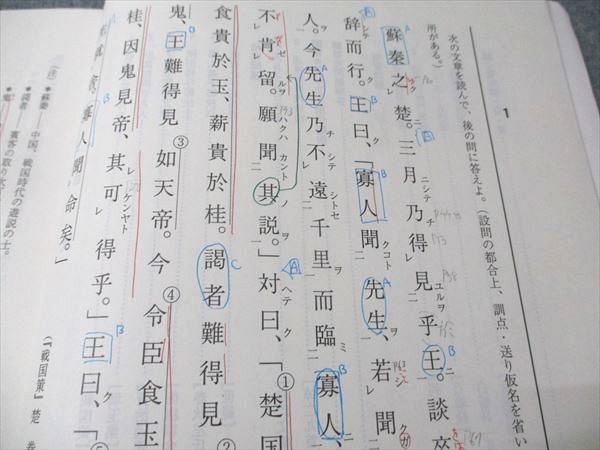 1
次の文章を読んで、後の問に答えよ。(設問の都合上、訓点・送り仮名を省い
所がある。)
蘇秦之楚。三月乃得見乎王。談卒
辞而行。王曰、「寡人聞先生、若聞
人。今先生乃不遠千里而臨寡人、
不肯留。願聞其説。」対曰、「①楚国
食貴於玉、薪貴於桂。謁者難得見②
鬼、王難得見③如天帝。今④令臣食玉
桂、因鬼見帝、其可得乎。」王曰、「⑤
寡人聞命矣。」
(『戦国策』楚
(注)
●蘇秦――中国、戦国時代の遊説の士。
●謁者――賓客の取り次
●鬼